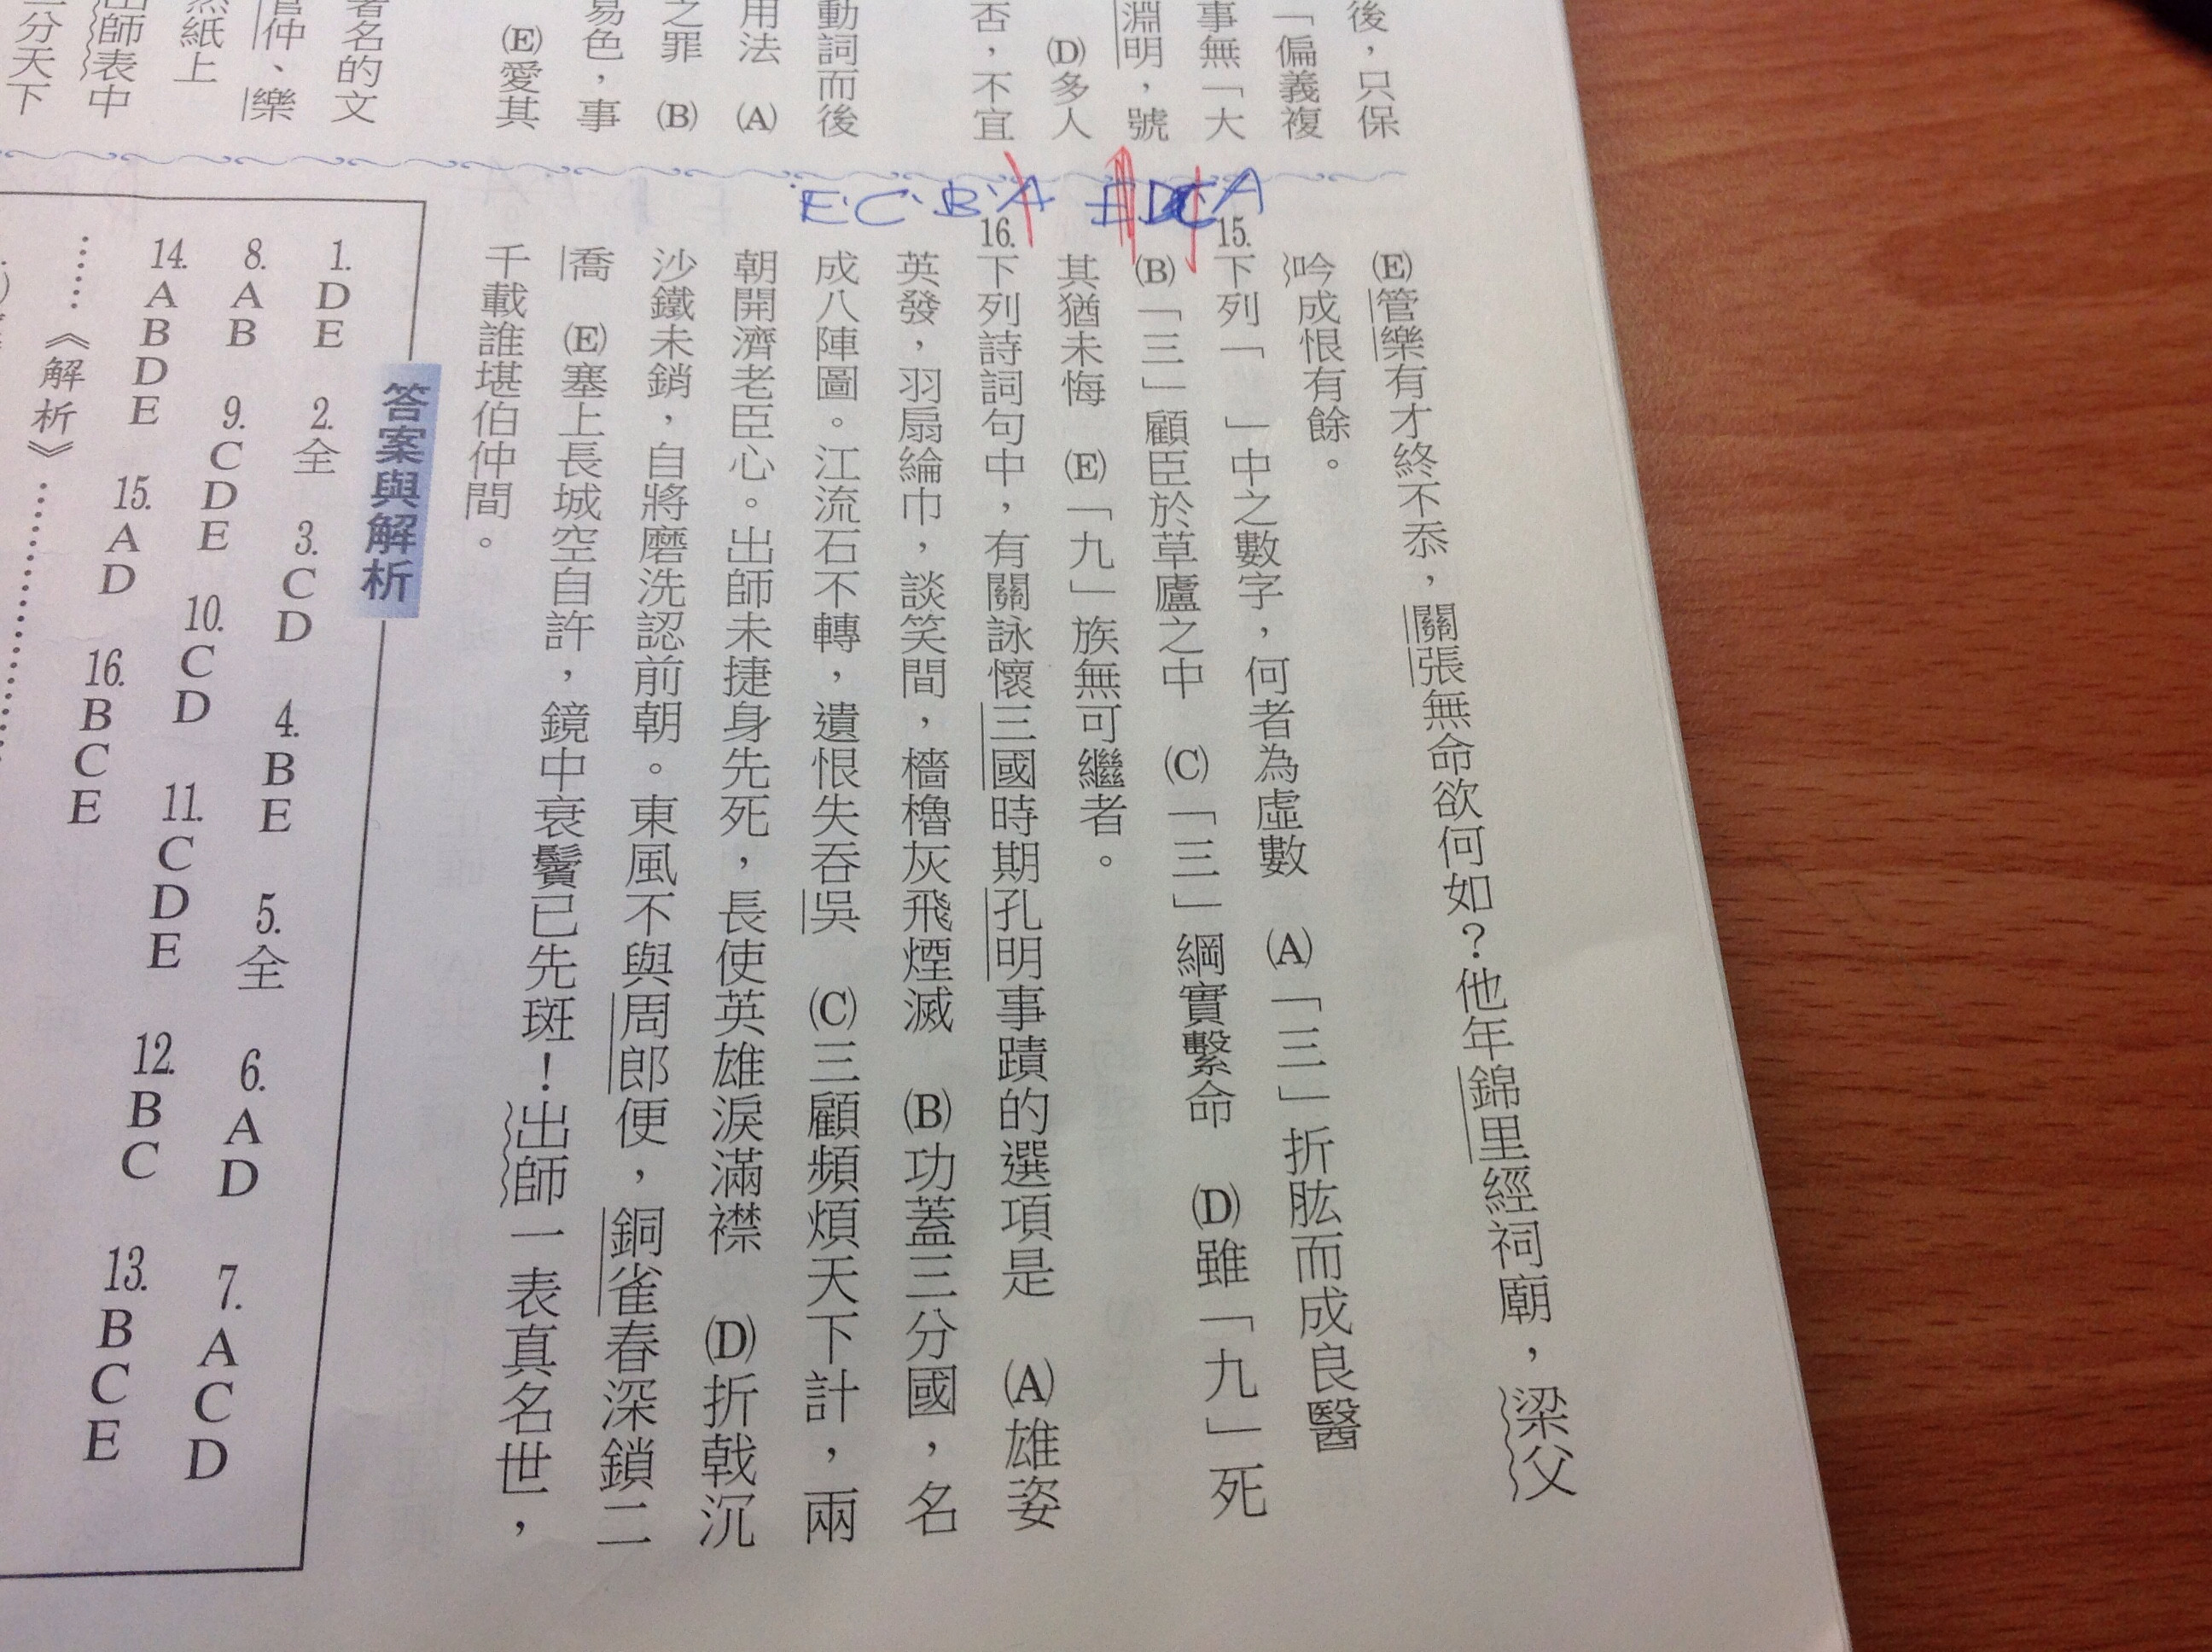 後，只保
「偏義複
事無「大
淵明，號
(D)多人
否，不宜
動詞而後
用法　(A)
之罪　(B)
易色，事
(E)愛其
(E)管樂有才終不忝，關張無命欲何如？他年錦里經祠廟，梁父
吟成恨有餘。
15.下列「　」中之數字，何者為虛數　(A)「三」折肱而成良醫
(B)「三」顧臣於草廬之中　(C)「三」綱實繫命　(D)雖「九」死
其猶未悔　(E)「九」族無可繼者。
16.下列詩詞句中，有關詠懷三國時期孔明事蹟的選項是　(A)雄姿
英發，羽扇綸巾，談笑間，檣櫓灰飛煙滅　(B)功蓋三分國，名
成八陣圖。江流石不轉，遺恨失吞吳　(C)三顧頻煩天下計，兩
朝開濟老臣心。出師未捷身先死，長使英雄淚滿襟　(D)折戟沉
沙鐵未銷，自將磨洗認前朝。東風不與周郎便，銅雀春深鎖二
喬　(E)塞上長城空自許，鏡中衰鬢已先斑！出師一表真名世，
千載誰堪伯仲間。
E.C.B.A
A
著名的文
管仲、樂
紙上
出師表中
分天下
答案與解析
1.DE　2.全　3.CD　4.BE　5.全　6.AD　7.ACD
8.AB　9.CDE　10.CD　11.CDE　12.BC　13.BCE
14.ABDE　15.AD　16.BCE
……《解析》……